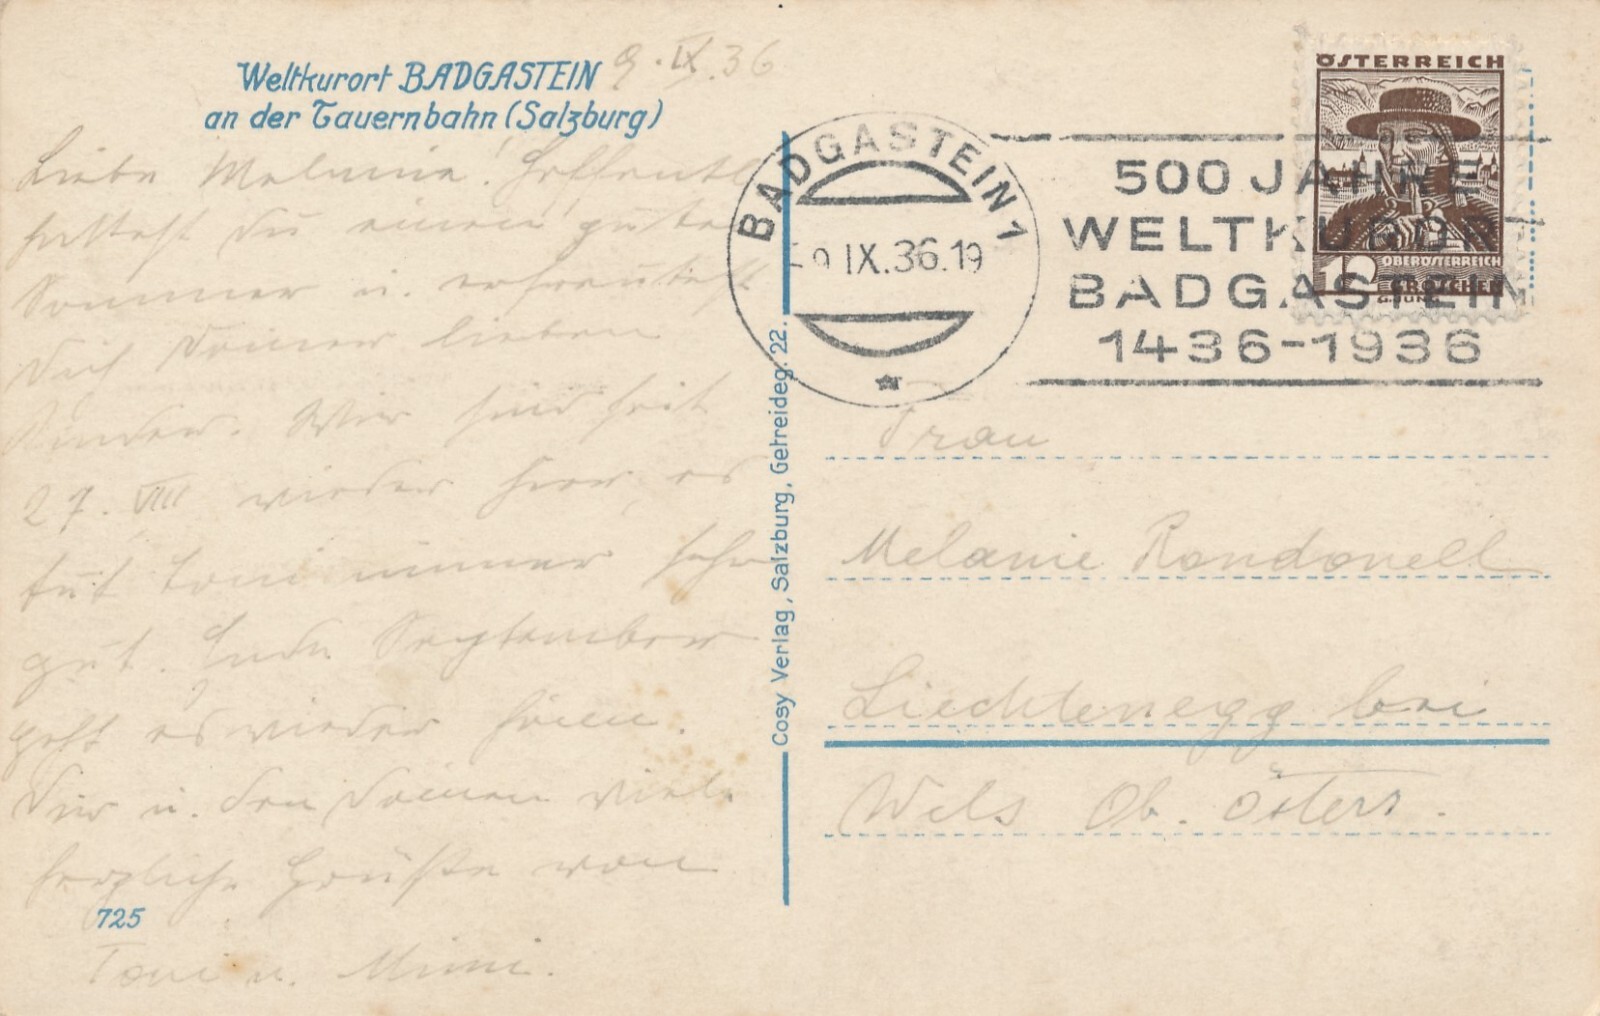 Weltkurort BADGASTEIN
an der Tauernbahn (Salzburg)
9. IX. 36
Liebe Melanie! Hoffentl.
hattest Du einen guten
Sommer u. erfreutest
Dich Deiner lieben
Kinder. Wir sind seit
27. VIII wieder hier, es
tut Toni immer sehr
gut. Ende September
geht es wieder heim.
Dir u. den Deinen viele
herzliche Grüße von
Toni u. Mimi.
725
Cosy Verlag, Salzburg, Getreideg. 22.
BADGASTEIN 1
-9.IX.36.19
500 JAHRE
WELTKURORT
BADGASTEIN
1436-1936
ÖSTERREICH
OBERÖSTERREICH
GROSCHEN
Frau
Melanie Rondonell
Liechtenegg bei
Wels Ob. Österr.